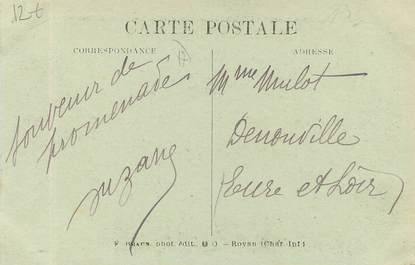 12-6
CARTE POSTALE
CORRESPONDANCE
ADRESSE
Souvenir de
promenade
Suzane
Mme Mulot
Denonville
Eure et Loir
F. BRAUN, phot. édit. - ROYAN (Char.-Inf.)